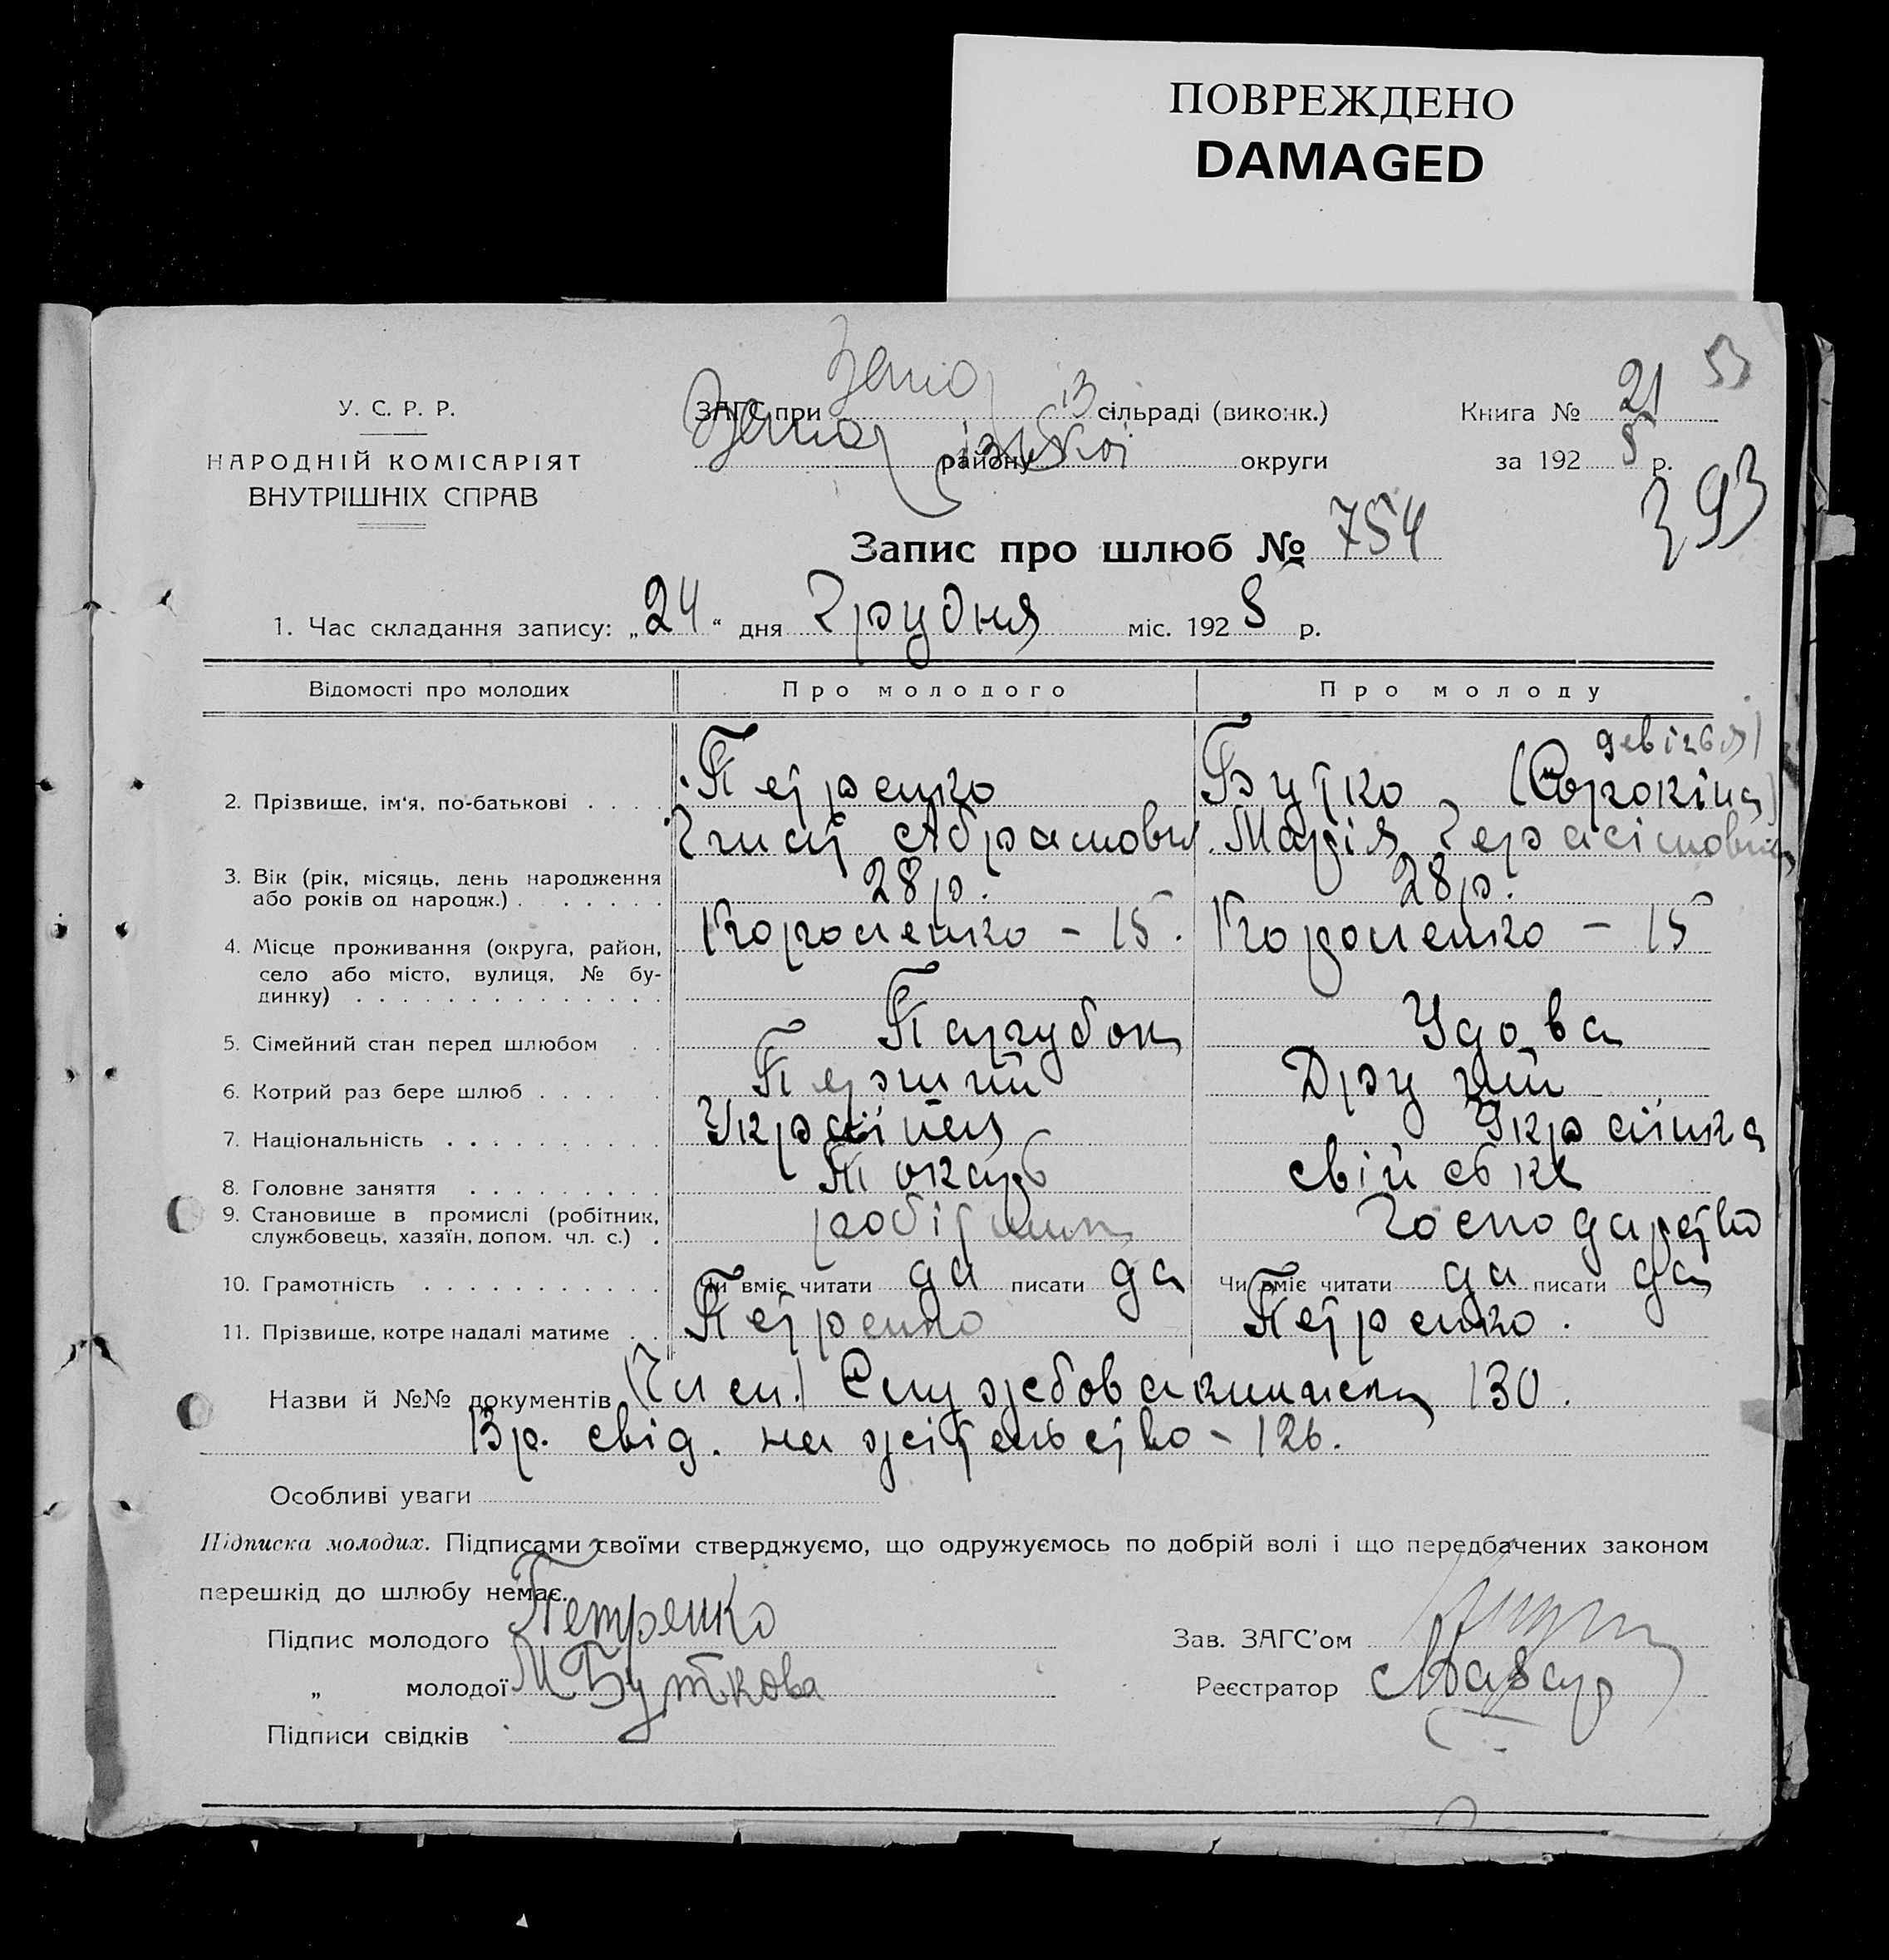 ПОВРЕЖДЕНО
DAMAGED
53
У. С. Р. Р.
НАРОДНІЙ КОМІСАРІЯТ
ВНУТРІШНІХ СПРАВ
ЗАГС при сільраді (виконк.)
району округи
Книга № 21
за 1928 р.
393
Запис про шлюб № 754
1. Час складання запису: „24“ дня Грудня міс. 1928 р.
Відомості про молодих Про молодого Про молоду
2. Прізвище, ім'я, по-батькові Петренко Бутко (Сорокіна)
Гнат Абрамович Марія Герасімовна
3. Вік (рік, місяць, день народження або років од народж.) 28 р. 28 р.
4. Місце проживання (округа, район, село або місто, вулиця, № будинку) Короленко - 15. Короленко - 15
5. Сімейний стан перед шлюбом Парубок Удова
6. Котрий раз бере шлюб Перший Другий
7. Національність Українец Українка
8. Головне заняття Токарь свійське
9. Становище в промислі (робітник, службовець, хазяїн, допом. чл. с.) робітник господарство
10. Грамотність Чи вміє читати да писати да Чи вміє читати да писати да
11. Прізвище, котре надалі матиме Петренко Петренко.
Назви й №№ документів 130.
Вр. свід. на жітельство - 126.
Особливі уваги
Підписка молодих. Підписами своїми стверджуємо, що одружуємось по добрій волі і що передбачених законом
перешкід до шлюбу немає.
Підпис молодого Петренко
Зав. ЗАГС'ом
„ молодої М Буткова
Реєстратор
Підписи свідків